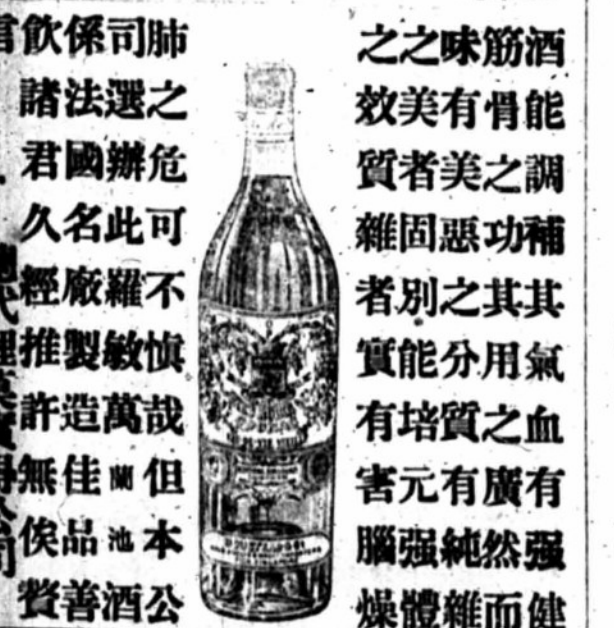 酒能調補其氣血有强健
筋骨之功其用之廣然而
味有美惡之分質有純雜
之美者固別能培元强體
之效質雜者實有害腦燥
肺之危可不慎哉但本公
司選辦此羅敏萬蘭池酒
係法國名廠製造佳品善
飲諸君久經推許無俟贅